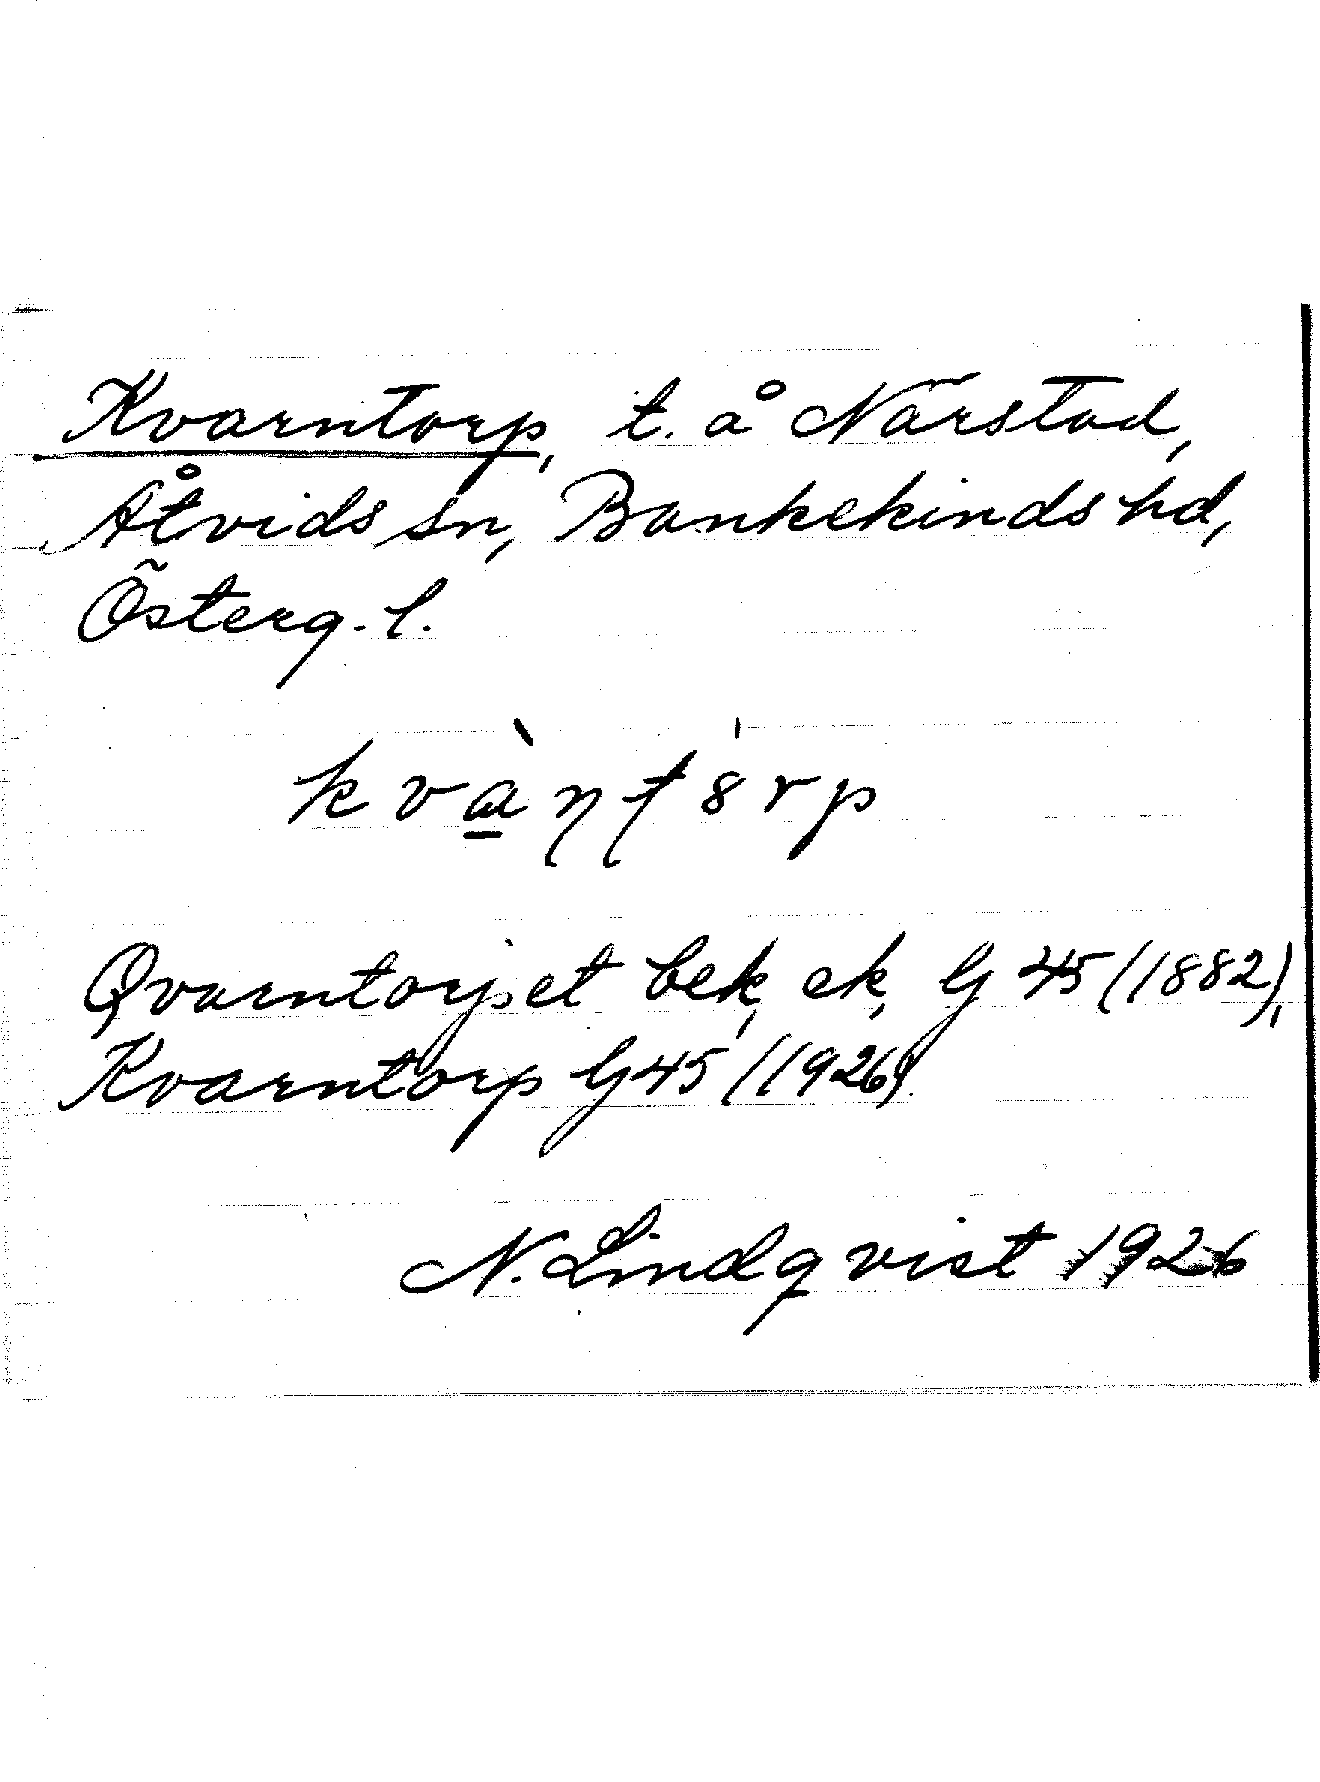 Kvarntorp, t. å Närstad,
Åtvids sn, Bankekinds hd,
Österg. l.
kvàɳʈ8rp
Qvarntorpet bek, ek, G 45 (1882),
Kvarntorp G 45 (1926).
N. Lindqvist 1926